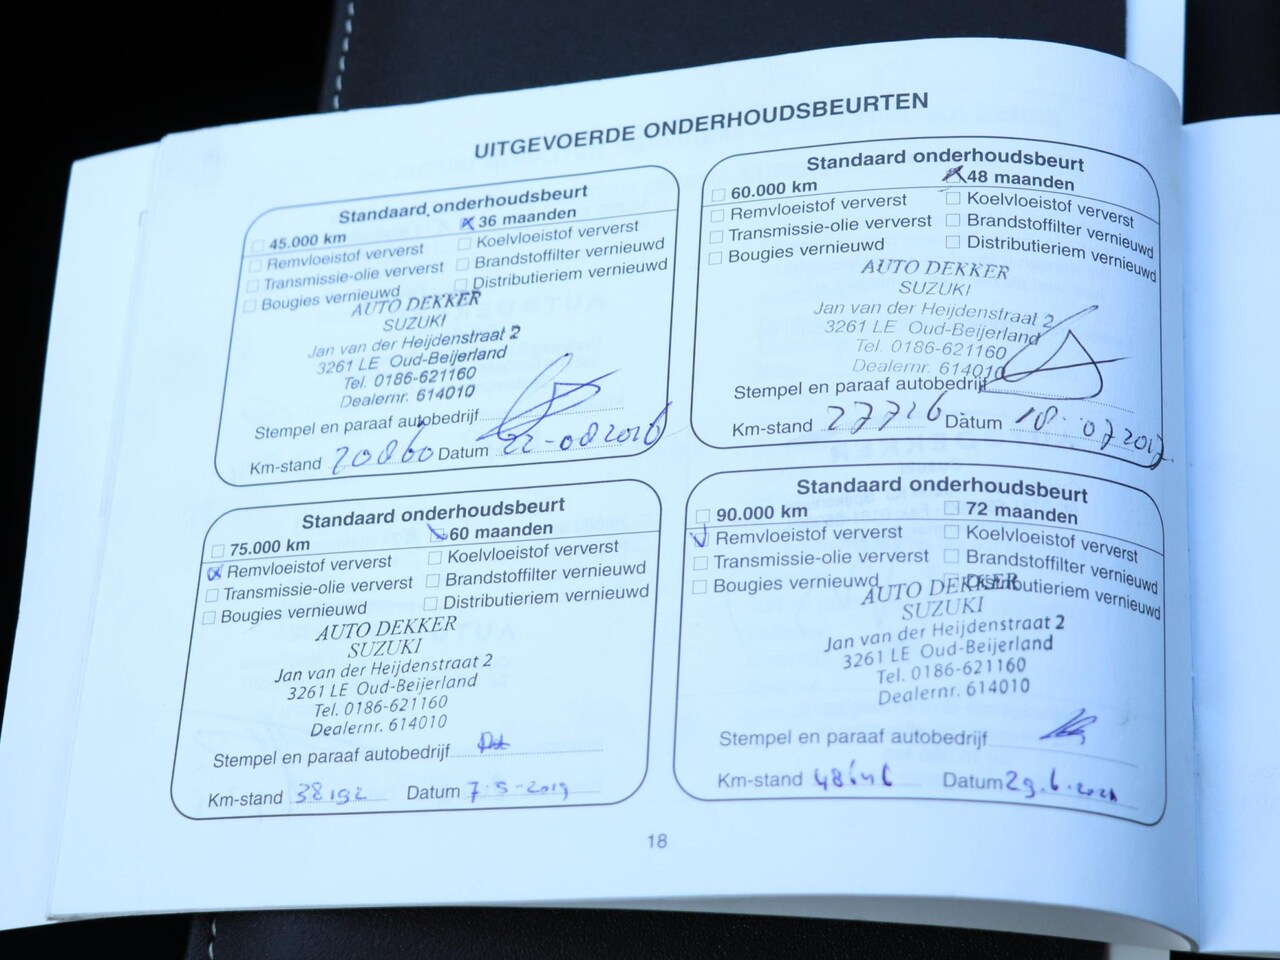 UITGEVOERDE ONDERHOUDSBEURTEN
Standaard onderhoudsbeurt
45.000 km 36 maanden
Remvloeistof ververst Koelvloeistof ververst
Transmissie-olie ververst Brandstoffilter vernieuwd
Bougies vernieuwd Distributieriem vernieuwd
AUTO DEKKER
SUZUKI
Jan van der Heijdenstraat 2
3261 LE Oud-Beijerland
Tel. 0186-621160
Dealernr. 614010
Stempel en paraaf autobedrijf
Km-stand 20860 Datum 22-08 2016
Standaard onderhoudsbeurt
60.000 km 48 maanden
Remvloeistof ververst Koelvloeistof ververst
Transmissie-olie ververst Brandstoffilter vernieuwd
Bougies vernieuwd Distributieriem vernieuwd
AUTO DEKKER
SUZUKI
Jan van der Heijdenstraat 2
3261 LE Oud-Beijerland
Tel. 0186-621160
Dealernr. 614010
Stempel en paraaf autobedrijf
Km-stand 27726 Datum 18 07 2017
Standaard onderhoudsbeurt
75.000 km 60 maanden
Remvloeistof ververst Koelvloeistof ververst
Transmissie-olie ververst Brandstoffilter vernieuwd
Bougies vernieuwd Distributieriem vernieuwd
AUTO DEKKER
SUZUKI
Jan van der Heijdenstraat 2
3261 LE Oud-Beijerland
Tel. 0186-621160
Dealernr. 614010
Stempel en paraaf autobedrijf
Km-stand 38192 Datum 7-5-2019
Standaard onderhoudsbeurt
90.000 km 72 maanden
Remvloeistof ververst Koelvloeistof ververst
Transmissie-olie ververst Brandstoffilter vernieuwd
Bougies vernieuwd Distributieriem vernieuwd
AUTO DEKKER
SUZUKI
Jan van der Heijdenstraat 2
3261 LE Oud-Beijerland
Tel. 0186-621160
Dealernr. 614010
Stempel en paraaf autobedrijf
Km-stand 48646 Datum 29.6.2021
18